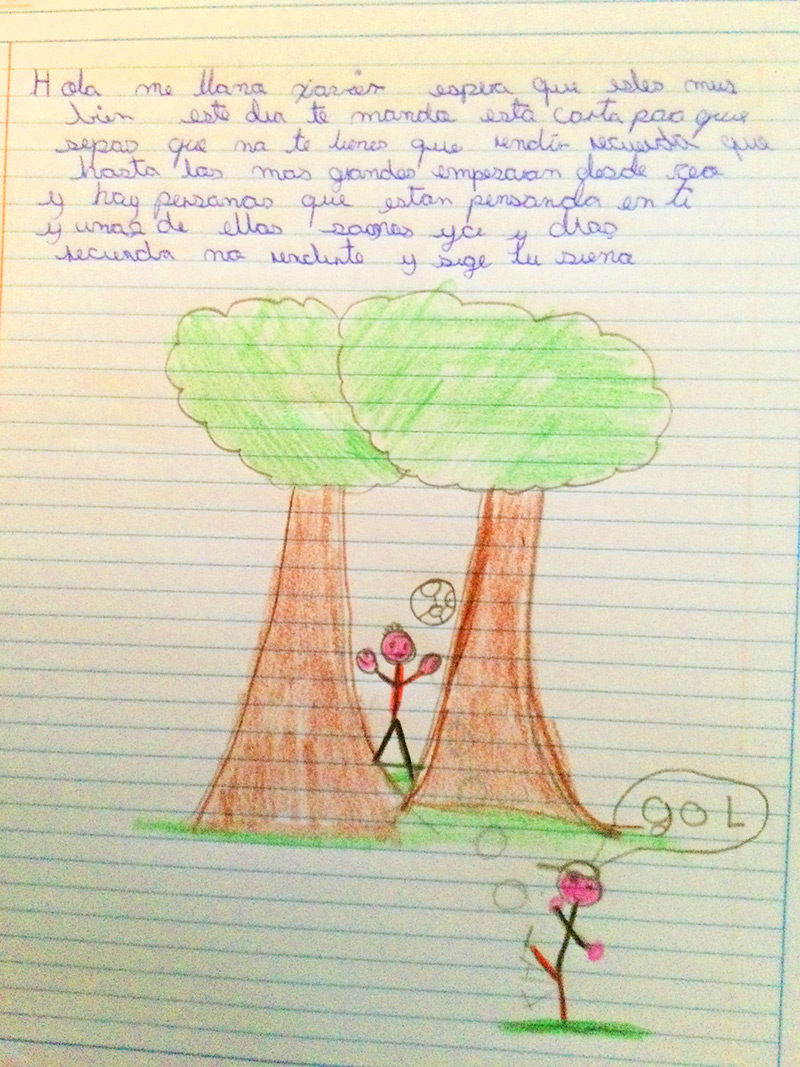 Hola me llana xavier espera que estes muy
bien este dia te manda esta carta para que
sepas que na te tienes que rendir recuerda que
hasta las mas grandes empesaron desde
y hay persanas que estan pensanda en ti
y unas de ellas yo y dias
recuerda na rendirte y sige tu suena
gOL